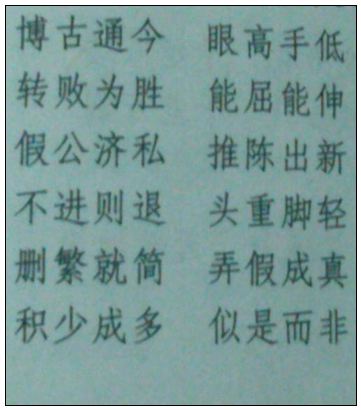 博古通今 眼高手低
转败为胜 能屈能伸
假公济私 推陈出新
不进则退 头重脚轻
删繁就简 弄假成真
积少成多 似是而非